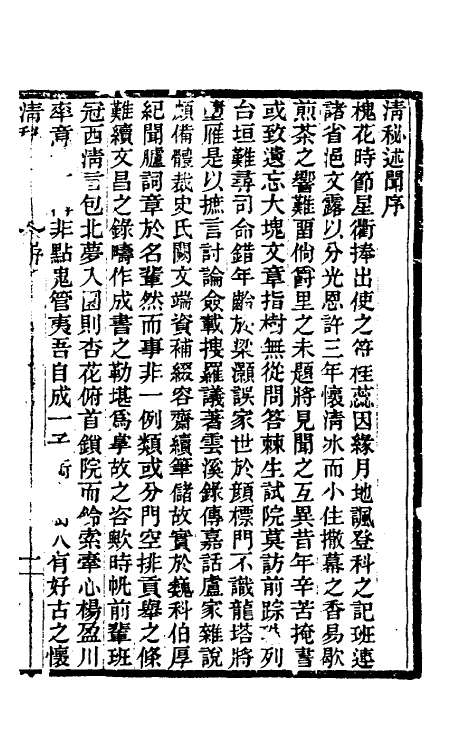 清秘述聞序
槐花時節星衢捧出使之符桂蕊因緣月地諷登科之記班連
諸省浥文露以分光恩許三年懷清冰而小住撤幕之香易歇
煎茶之響難留倘爵里之未題將見聞之互異昔年辛苦掩蓍
或致遺忘大塊文章指樹無從問答棘生試院莫訪前踪列
台垣難尋司命錯年齡於梁灝誤家世於顏標門不識龍塔將
雁是以摭言討論僉載搜羅議著雲溪錄傳嘉話盧家雜說
頗備體裁史氏闕文端資補綴容齋續筆儲故實於巍科伯厚
紀聞臚詞章於名輩然而事非一例類或分門空排貢舉之條
難續文昌之錄疇作成書之勒堪為掌故之咨歟時帆前輩班
冠西清言包北夢入園則杏花俯首鎖院而鈴索牽心楊盈川
率意非點鬼管夷吾自成一子八有好古之懷
清秘
序
一